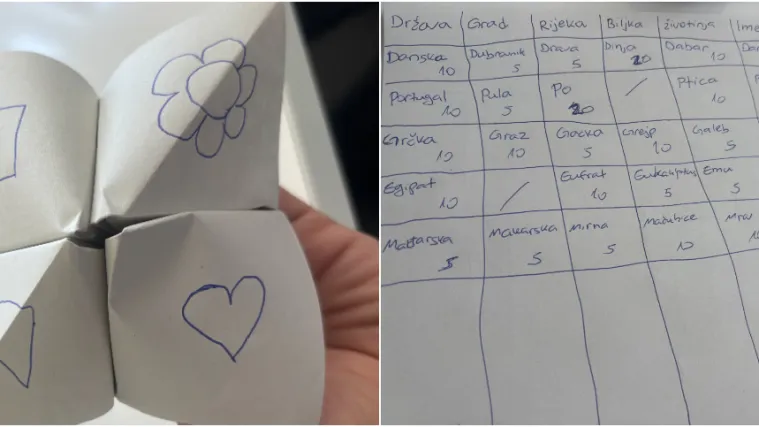 Država Grad Rijeka Biljka životinja Ime
Danska Dubrovnik Drava Dinja Dabar Dan
10 5 5 20 10
Portugal Pula Po / Ptica P
10 5 20 10
Grčka Graz Gacka Grejp Galeb
10 10 5 10 5
Egipat / Eufrat Eukaliptus Emu
10 10 5 5
Mađarska Makarska Mirna Matičnice Mrav
5 5 5 10